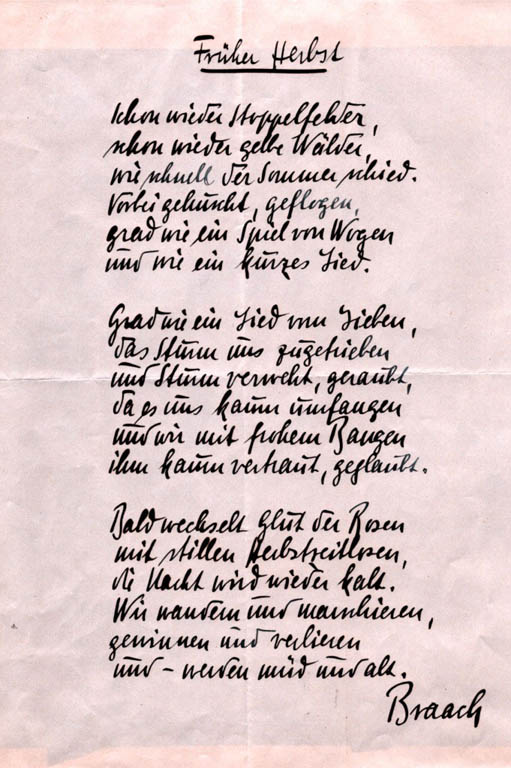 Früher Herbst
Schon wieder Stoppelfelder,
schon wieder gelbe Wälder,
wie schnell der Sommer schied.
Vorbei gehuscht, geflogen,
grad wie ein Spiel von Wogen
und wie ein kurzes Lied.
Grad wie ein Lied vom Lieben,
das Sturm uns zugetrieben
und Sturm verweht, geraubt,
da es uns kaum umfangen
und wir mit frohem Bangen
ihm kaum vertraut, geglaubt.
Bald wechselt Glut der Rosen
mit stillen Herbstzeitlosen,
die Nacht wird wieder kalt.
Wir wandern und marschieren,
gewinnen und verlieren
und - werden müd und alt.
Braach